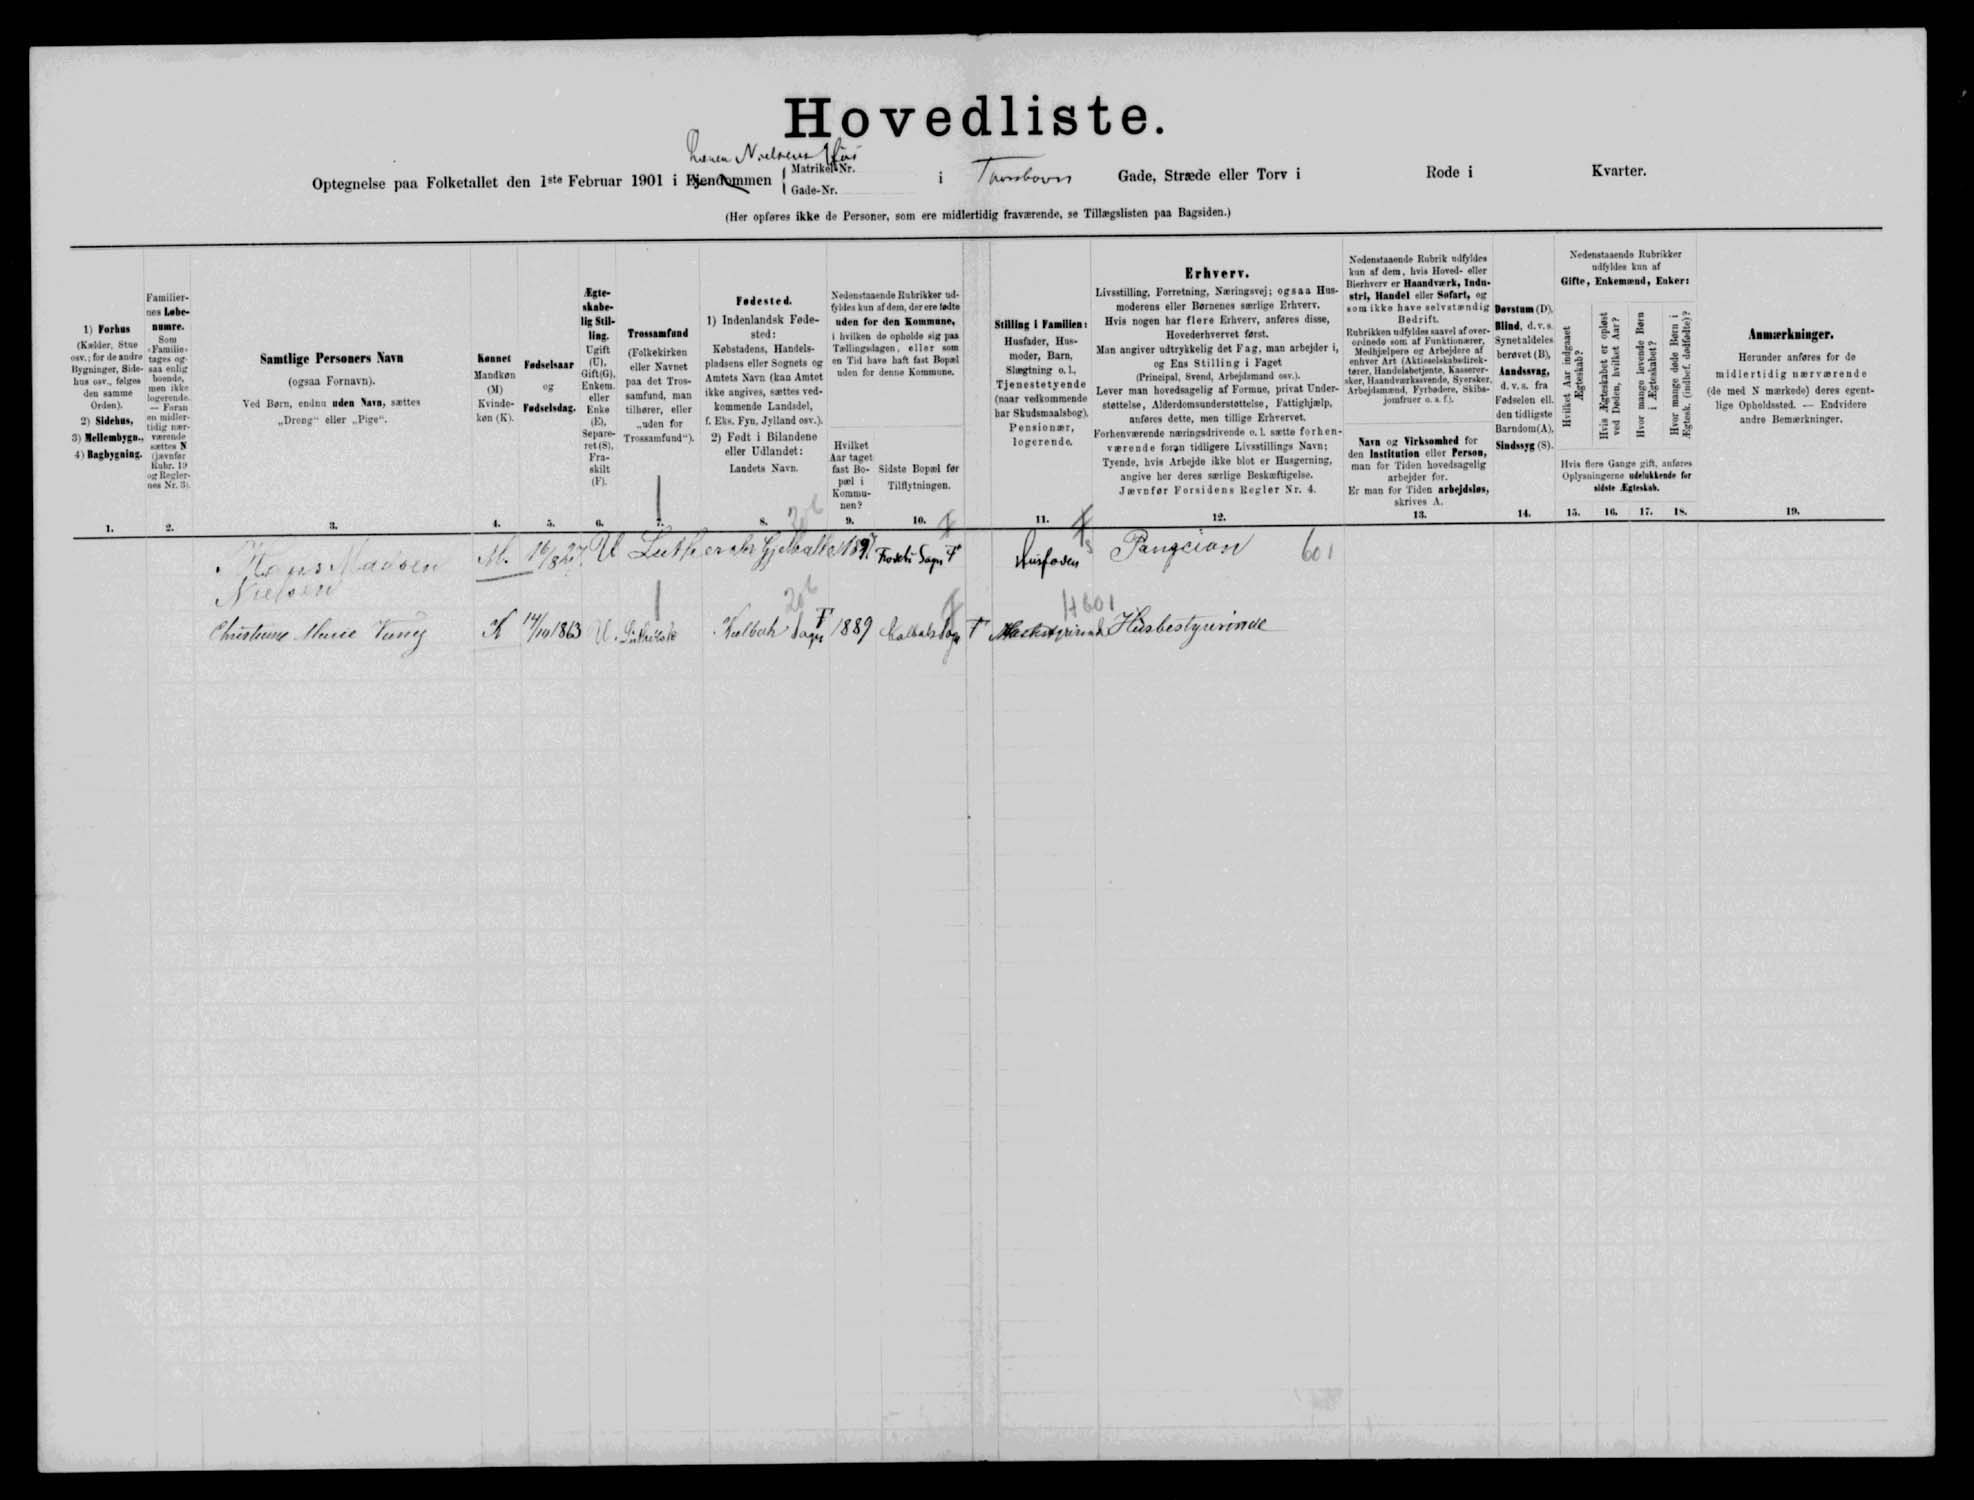 Hovedliste.
Nielsens Hus
Optegnelse paa Folketallet den 1ste Februar 1901 i Ejendommen { Matrikel-Nr. Gade-Nr. i Thorshavn Gade, Stræde eller Torv i Rode i Kvarter.
(Her opføres ikke de Personer, som ere midlertidig fraværende, se Tillægslisten paa Bagsiden.)
1) Forhus (Kælder, Stue osv.; for de andre Bygninger, Sidehus osv., følges den samme Orden). 2) Sidehus, 3) Mellembygn., 4) Bagbygning.
Familiernes Løbenumre. Som «Familie» tages ogsaa enlig boende, men ikke logerende. — Foran en midlertidig nærværende sættes N (jævnfør Rubr. 19 og Reglernes Nr. 3).
Samtlige Personers Navn (ogsaa Fornavn). Ved Børn, endnu uden Navn, sættes „Dreng“ eller „Pige“.
Kønnet Mandkøn (M) Kvindekøn (K).
Fødselsaar og Fødselsdag.
Ægteskabelig Stilling. Ugift (U), Gift(G), Enkem. eller Enke (E), Separeret(S), Fraskilt (F).
Trossamfund (Folkekirken eller Navnet paa det Trossamfund, man tilhører, eller „uden for Trossamfund“).
Fødested. 1) Indenlandsk Fødested: Købstadens, Handelspladsens eller Sognets og Amtets Navn (kan Amtet ikke angives, sættes vedkommende Landsdel, f. Eks. Fyn, Jylland osv.). 2) Født i Bilandene eller Udlandet: Landets Navn.
Nedenstaaende Rubrikker udfyldes kun af dem, der ere fødte uden for den Kommune, i hvilken de opholde sig paa Tællingsdagen, eller som en Tid have haft fast Bopæl uden for denne Kommune.
Hvilket Aar taget fast Bopæl i Kommunen?
Sidste Bopæl før Tilflytningen.
Stilling i Familien: Husfader, Husmoder, Barn, Slægtning o.l., Tjenestetyende (naar vedkommende har Skudsmaalsbog), Pensionær, logerende.
Erhverv. Livsstilling, Forretning, Næringsvej; ogsaa Husmoderens eller Børnenes særlige Erhverv. Hvis nogen har flere Erhverv, anføres disse, Hovederhvervet først. Man angiver udtrykkelig det Fag, man arbejder i, og Ens Stilling i Faget (Principal, Svend, Arbejdsmand osv.). Lever man hovedsagelig af Formue, privat Understøttelse, Alderdomsunderstøttelse, Fattighjælp, anføres dette, men tillige Erhvervet. Forhenværende næringsdrivende o. l. sætte forhenværende foran tidligere Livsstillings Navn; Tyende, hvis Arbejde ikke blot er Husgerning, angive her deres særlige Beskæftigelse. Jævnfør Forsidens Regler Nr. 4.
Nedenstaaende Rubrik udfyldes kun af dem, hvis Hoved- eller Bierhverv er Haandværk, Industri, Handel eller Søfart, og som ikke have selvstændig Bedrift. Rubrikken udfyldes saavel af overordnede som af Funktionærer, Medhjælpere og Arbejdere af enhver Art (Aktieselskabsdirektører, Handelsbetjente, Kasserersker, Haandværkssvende, Syersker, Arbejdsmænd, Fyrbødere, Skibsjomfruer o. s. f.).
Navn og Virksomhed for den Institution eller Person, man for Tiden hovedsagelig arbejder for. Er man for Tiden arbejdsløs, skrives A.
Døvstum (D), Blind, d.v.s. Synet aldeles berøvet (B), Aandssvag, d.v.s. fra Fødselen ell. den tidligste Barndom(A), Sindssyg (S).
Nedenstaaende Rubrikker udfyldes kun af Gifte, Enkemænd, Enker:
Hvilket Aar indgaaet Ægteskab?
Hvis Ægteskabet er opløst ved Døden, hvilket Aar?
Hvor mange levende Børn i Ægteskabet?
Hvor mange døde Børn i Ægtesk. (indbef. dødfødte)?
Hvis flere Gange gift, anføres Oplysningerne udelukkende for sidste Ægteskab.
Anmærkninger. Herunder anføres for de midlertidig nærværende (de med N mærkede) deres egentlige Opholdssted. — Endvidere andre Bemærkninger.
1. 2. 3. 4. 5. 6. 7. 8. 9. 10. 11. 12. 13. 14. 15. 16. 17. 18. 19.
Hans Madsen M. 16/8 27 U Husfader 601
Nielsen
Christiane Marie K 14/10 1863 U. Sogn F 1889 F Husbestyrerinde